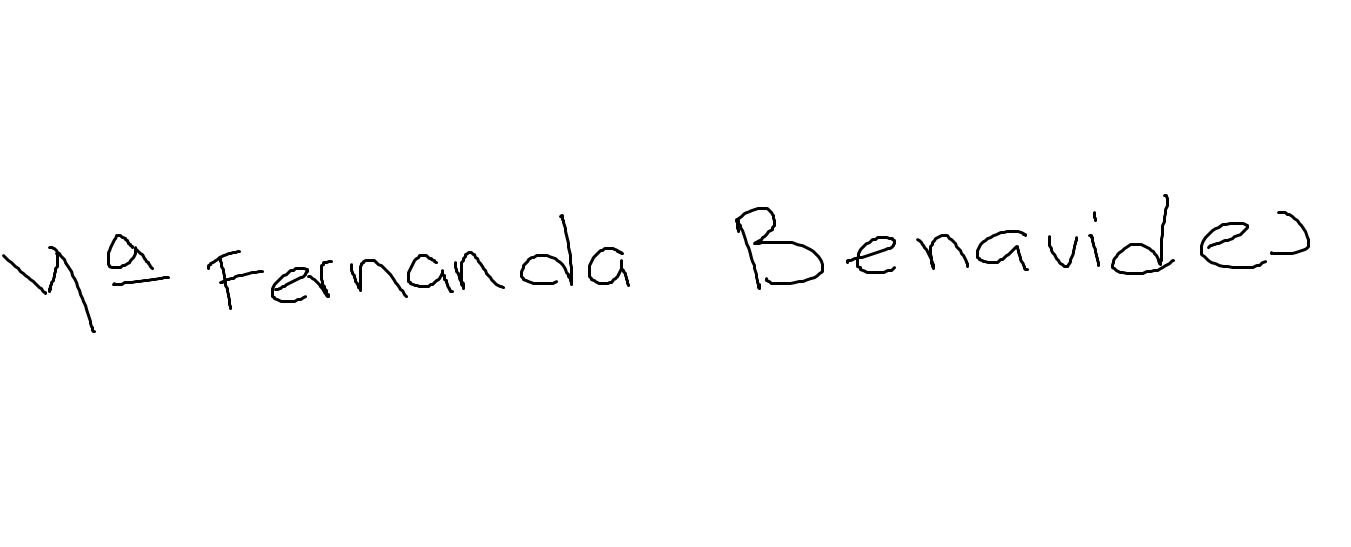 Mª Fernanda Benavides